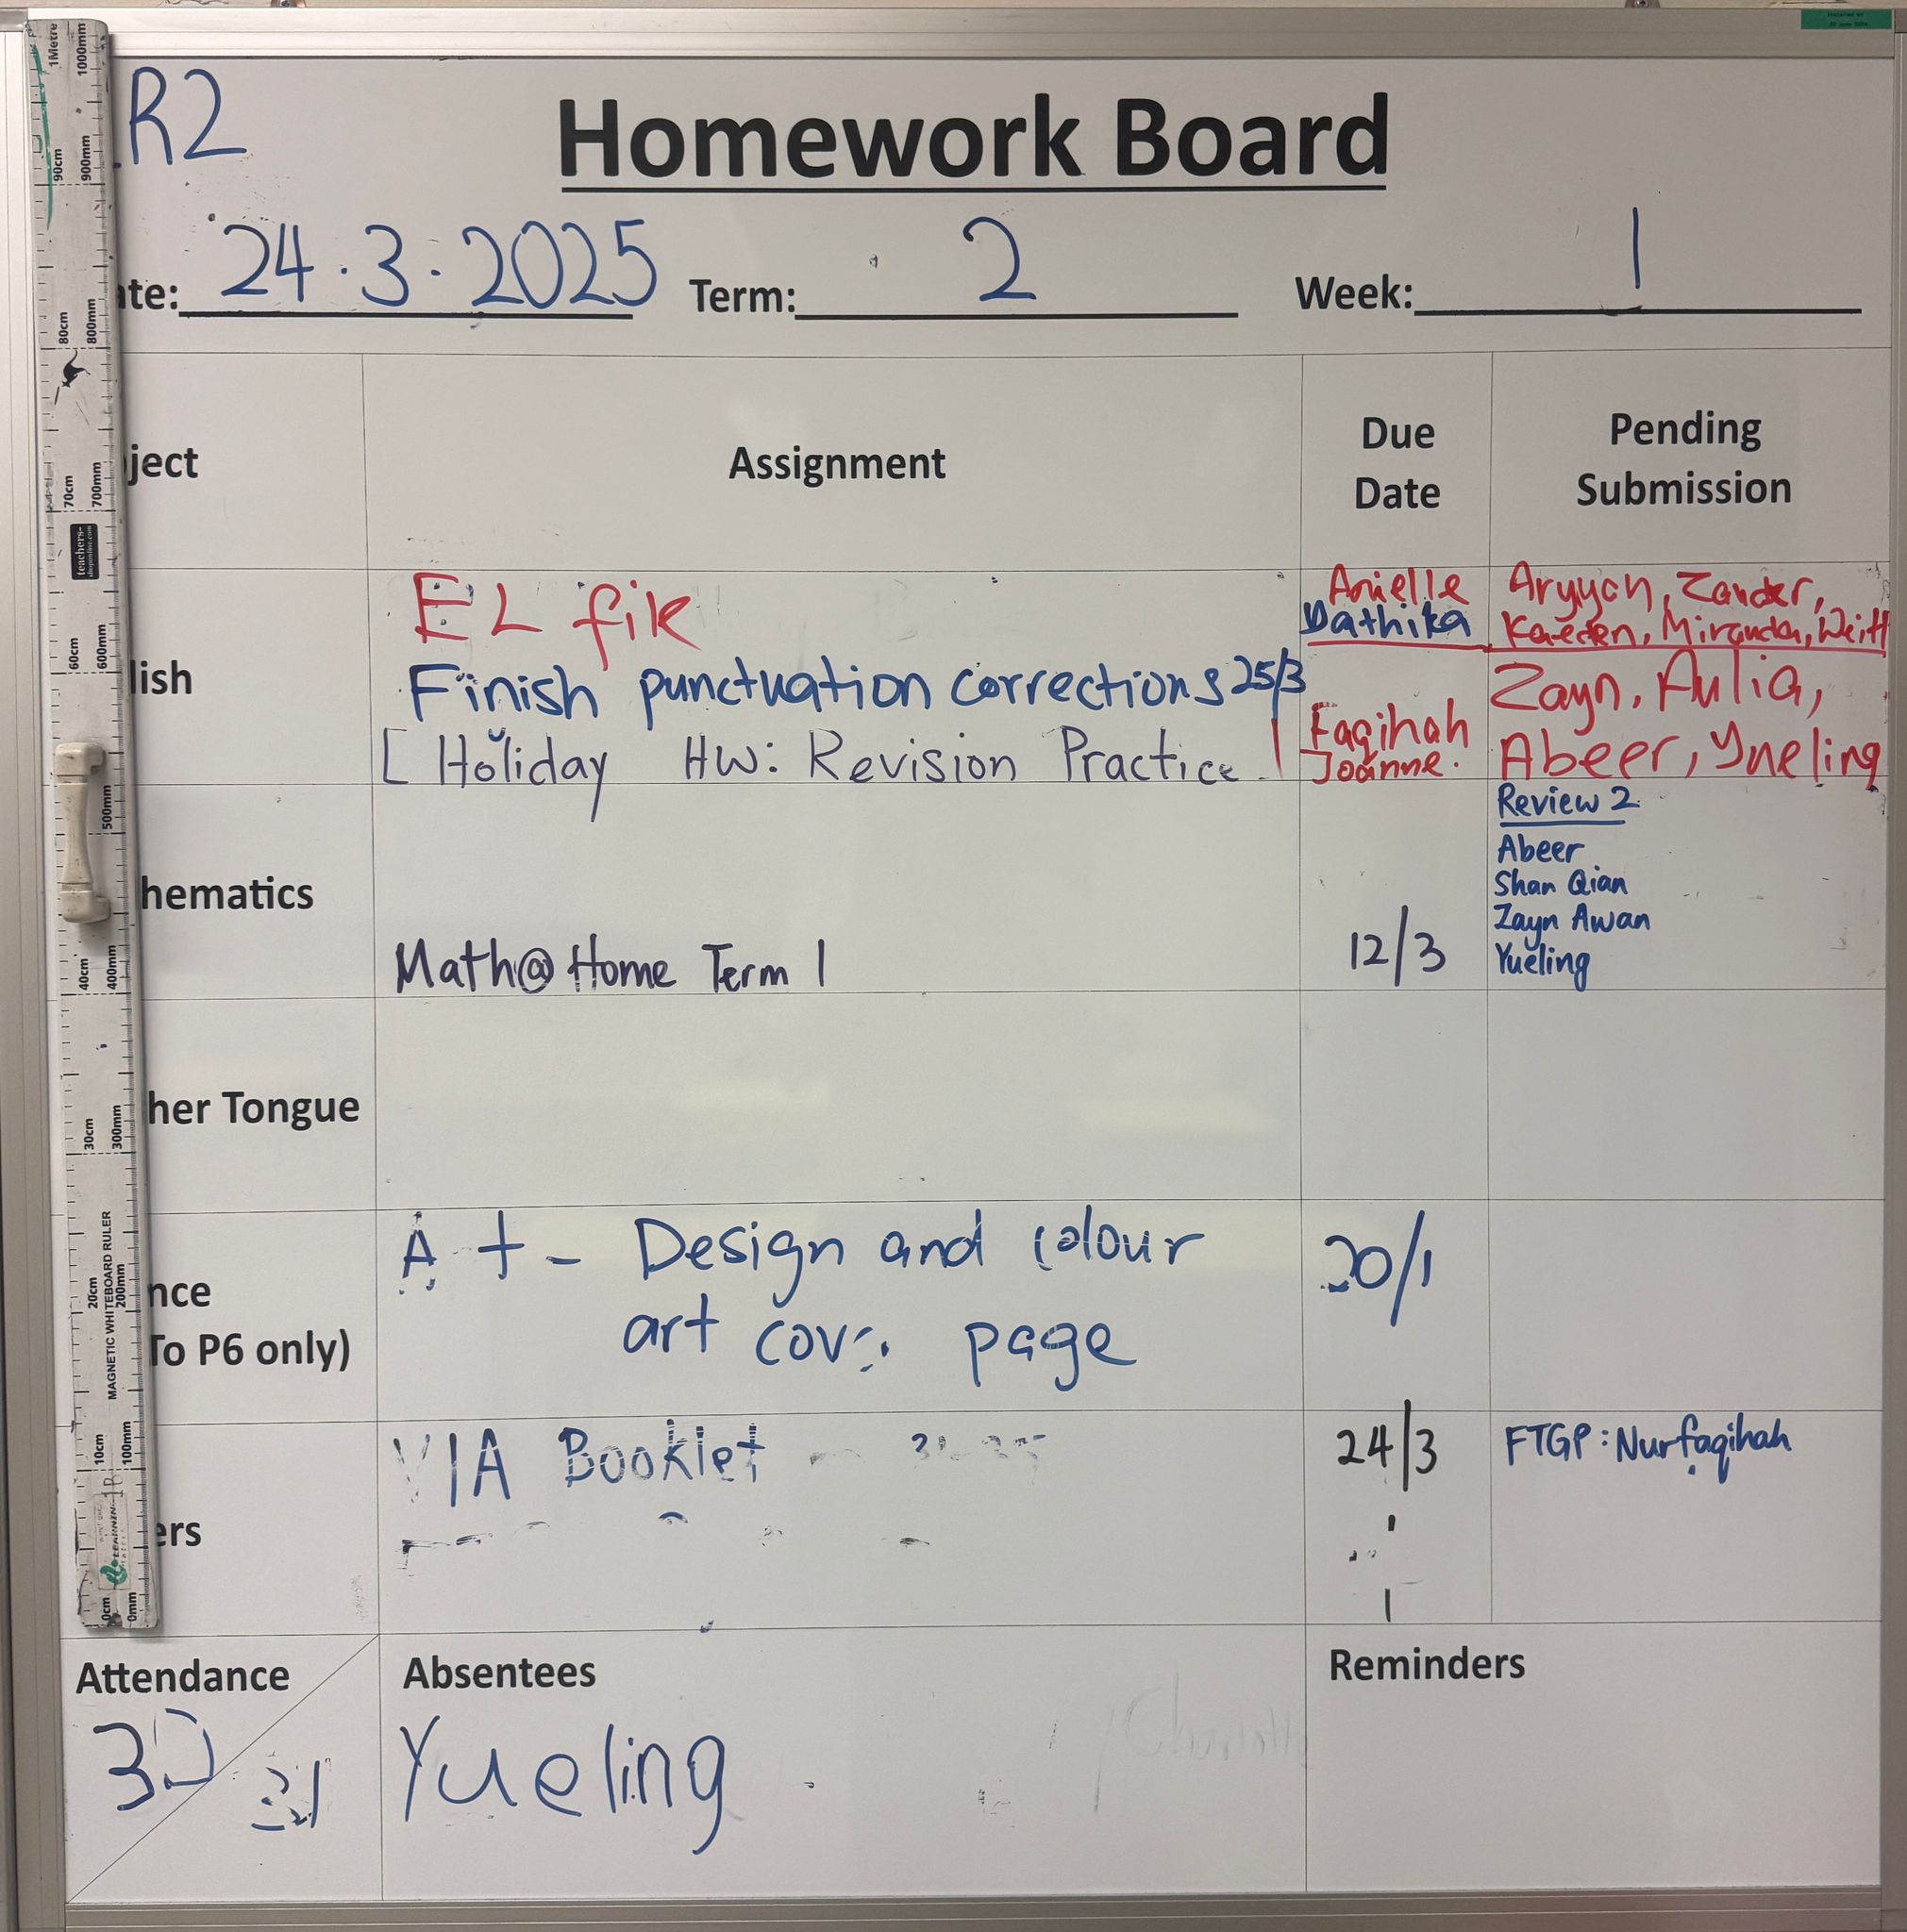 R2
Homework Board
ate: 24.3.2025 Term: 2 Week: 1
ject
Assignment
Due
Date
Pending
Submission
lish
EL file
Finish punctuation corrections 25/3
[ Holiday HW: Revision Practice. ]
Arielle
Dathika
Faqihah
Joanne.
Aryyan, Zander,
Kaeden, Miranda,
Zayn, Aulia,
Abeer, Yueling
hematics
Math@Home Term 1
12/3
Review 2
Abeer
Shan Qian
Zayn Awan
Yueling
her Tongue
nce
To P6 only)
A t - Design and colour
art cover page
20/1
ers
VIA Booklet
24/3
FTGP: Nurfaqihah
Attendance
30
31
Absentees
Yueling
Reminders
1Metre 1000mm
90cm 900mm
80cm 800mm
70cm 700mm
teachers-
60cm 600mm
500mm
40cm 400mm
30cm 300mm
20cm 200mm
MAGNETIC WHITEBOARD RULER
10cm 100mm
0cm 0mm